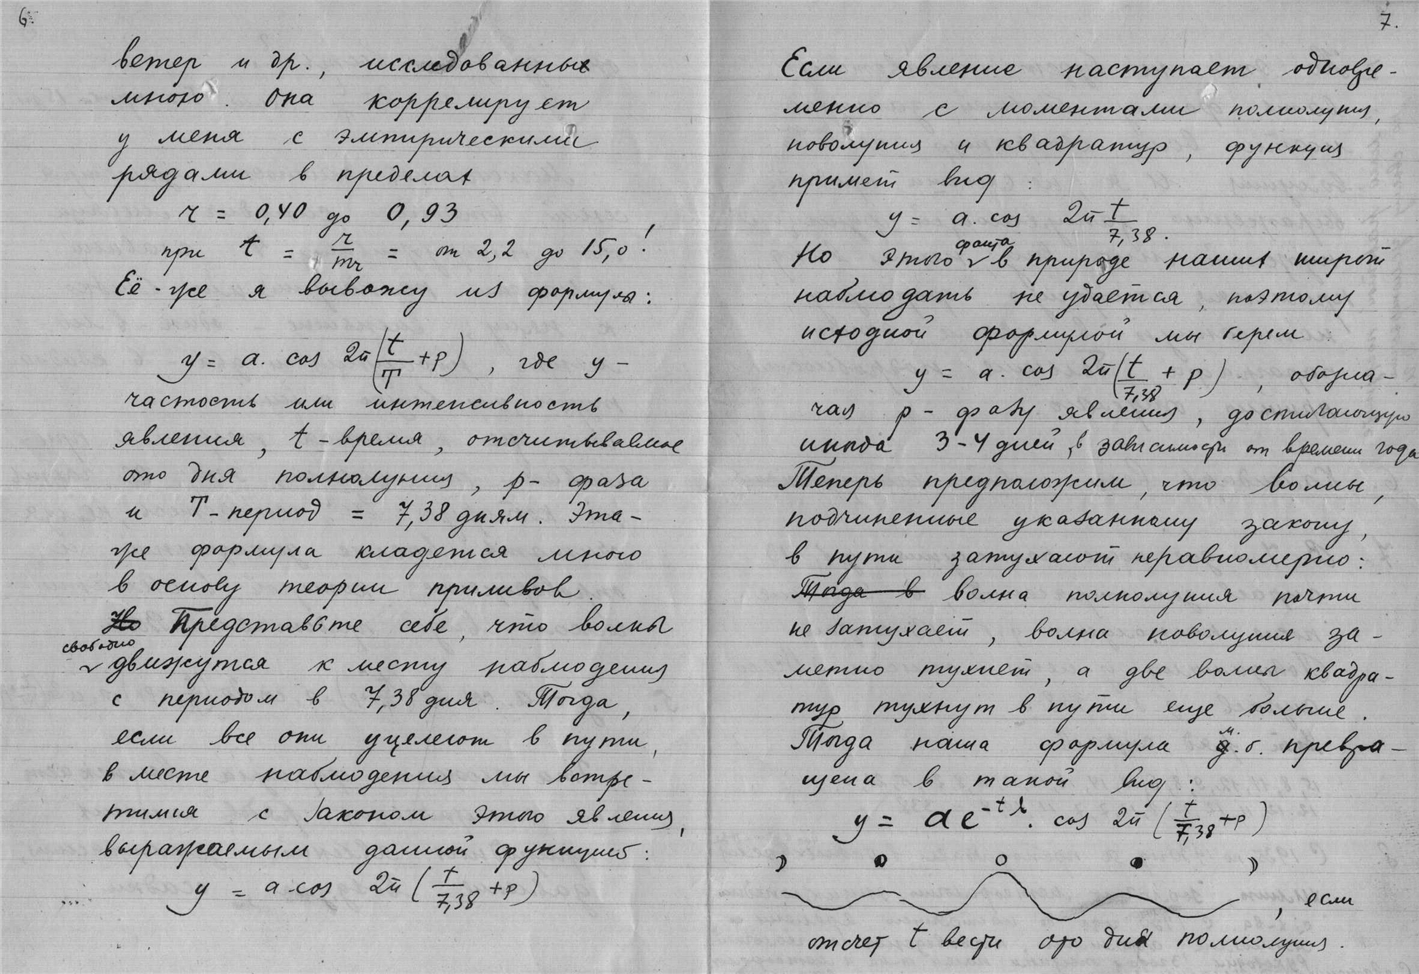 6.
ветер и др., исследованных
мною. Она коррелирует
у меня с эмпирическими
рядами в пределах
r = 0,40 до 0,93
при t = r/mr = от 2,2 до 15,0!
Её-же я вывожу из формулы:
y = a. cos 2π(t/T + p), где y –
частость или интенсивность
явления, t – время, отсчитываемое
ото дня полнолуния, p – фаза
и T – период = 7,38 дням. Эта-
же формула кладется мною
в основу теории приливов.
Но Представьте себе, что волны
свободно
движутся к месту наблюдения
с периодом в 7,38 дня. Тогда,
если все они уцелеют в пути,
в месте наблюдения мы встре-
тимся с законом этого явления,
выражаемым данной функцией:
y = a cos 2π (t/7,38 + p)
7.
Если явление наступает одновре-
менно с моментами полнолуния,
новолуния и квадратур, функция
примет вид:
y = a. cos 2π t/7,38.
факта
Но этого в природе наших широт
наблюдать не удается, поэтому
исходной формулой мы берем
y = a. cos 2π(t/7,38 + p), обозна-
чая p – фазу явления, достигающую
иногда 3-4 дней, в зависимости от времени года
Теперь предположим, что волны,
подчиненные указанному закону,
в пути затухают неравномерно:
Тогда в волна полнолуния почти
не затухает, волна новолуния за-
метно тухнет, а две волны квадра-
тур тухнут в пути еще больше.
Тогда наша формула м.б. превра-
щена в такой вид:
y = ae^-tλ. cos 2π (t/7,38 + p)
, если
отсчет t вести ото дня полнолуния.